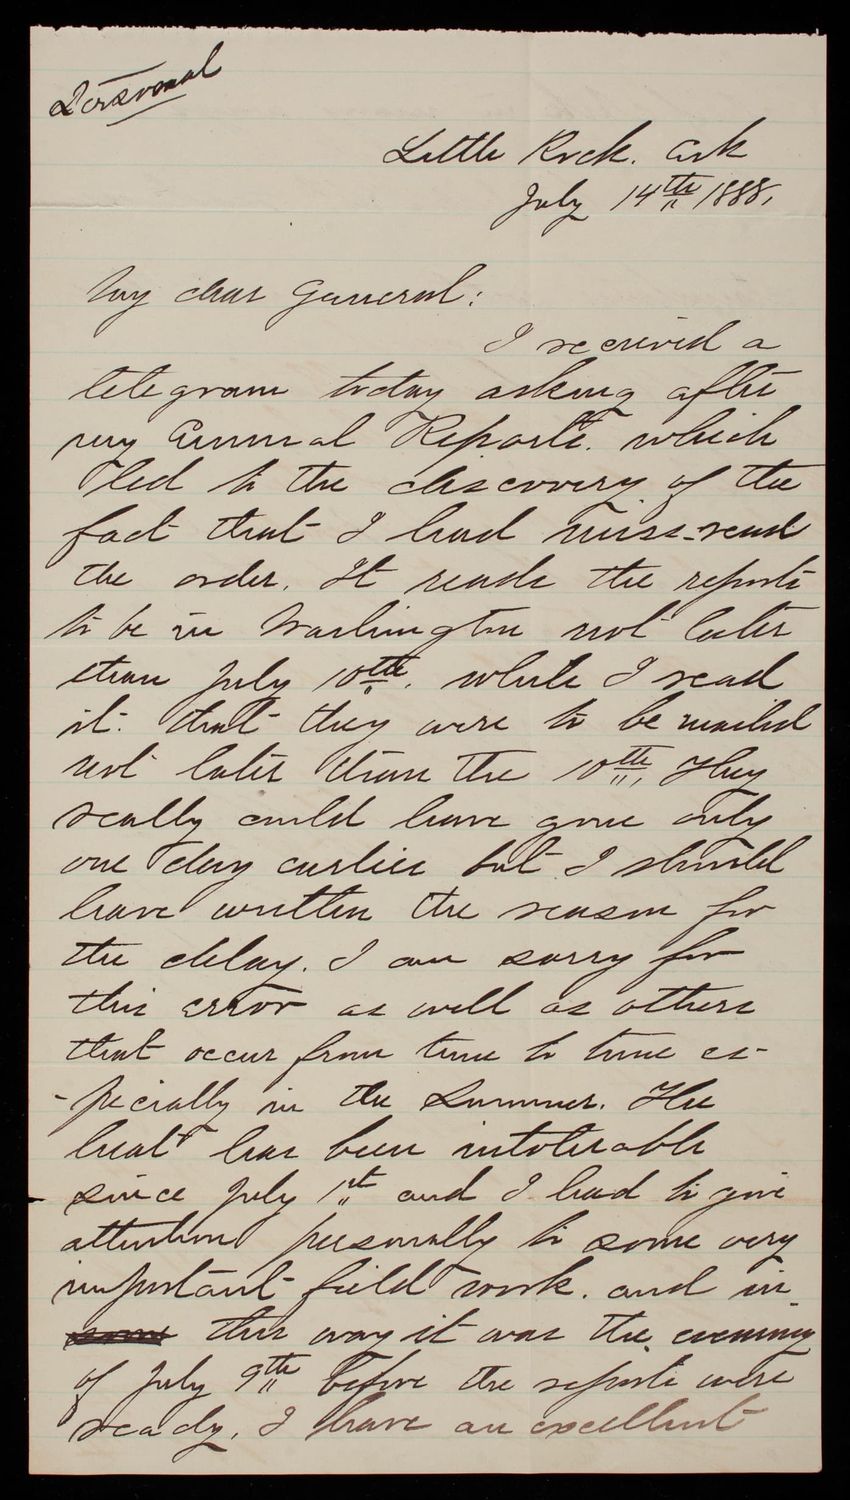 Personal
Little Rock. Ark
July 14th 1888.
My dear General:
I received a
telegram today asking after
my Annual Reports. which
led to the discovery of the
fact that I had miss-read
the order. It reads the reports
to be in Washington not later
than July 10th. while I read
it. that they were to be mailed
not later than the 10th. They
really could have gone only
one day earlier but I should
have written the reason for
the delay. I am sorry for
this error as well as others
that occur from time to time es-
-pecially in the Summer. The
heat has been intolerable
since July 1st and I had to give
attention personally to some very
important field work. and in
some this way it was the evening
of July 9th before the reports were
ready. I have an excellent